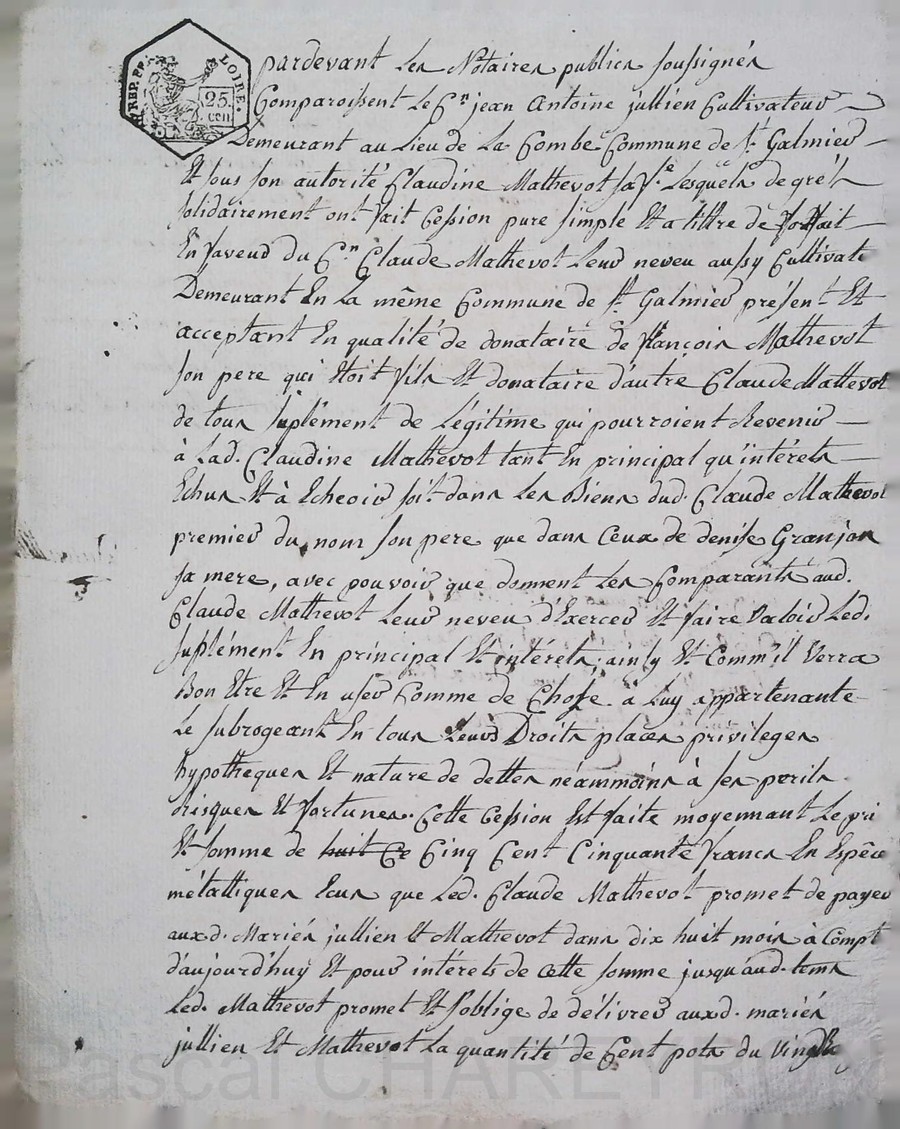 RÉP. FR.
LOIRE
25.
cen
pardevant Les Notaires publics soussignés
Comparoissent Le C.en jean Antoine jullien Cultivateur
Demeurant au Lieu de La Combe Commune de S.t Galmier
Et sous son autorité Claudine Mathevot sa f.e Lesquels de gré &
solidairement ont fait Cession pure simple Et a tittre de forfait
En faveur du C.en Claude Mathevot Leur neveu aussy Cultivat
Demeurant En La même Commune de S.t Galmier présent Et
acceptant En qualité de donataire de françois Mathevot
son pere qui étoit fils Et donataire d'autre Claude Mathevot
de tous suplément de Légitime qui pourroient Revenir
à Lad. Claudine Mathevot tant En principal qu'intérets
Echus Et à Echeoir soit dans Les Biens dud. Claude Mathevot
premier du nom son pere que dans Ceux de denise Granjon
sa mere, avec pouvoir que donnent Les Comparants aud.
Claude Mathevot Leur neveu d'Exercer Et faire Valoir Led.
suplément En principal Et intérets, ainsy Et Comm'il Verra
Bon Etre Et En user Comme de Chose à Luy appartenante
Le subrogeant En tous Leurs Droits places privileges
hypotheques Et nature de dettes néammoins à ses perils
risques Et fortunes. Cette Cession Est faite moyennant Le pri
Et somme de huit Ce Cinq Cent Cinquante francs En Espêce
métalliques Ecus que Led. Claude Mathevot promet de payer
auxd. Mariés jullien Et Mathevot dans dix huit mois à Compt
d'aujourd'huy Et pour intérets de cette somme jusqu'aud. tems
Led. Mathevot promet Et s'oblige de délivrer auxd. mariés
jullien Et Mathevot La quantité de Cent pots du Vin
Pascal CHAREYRON